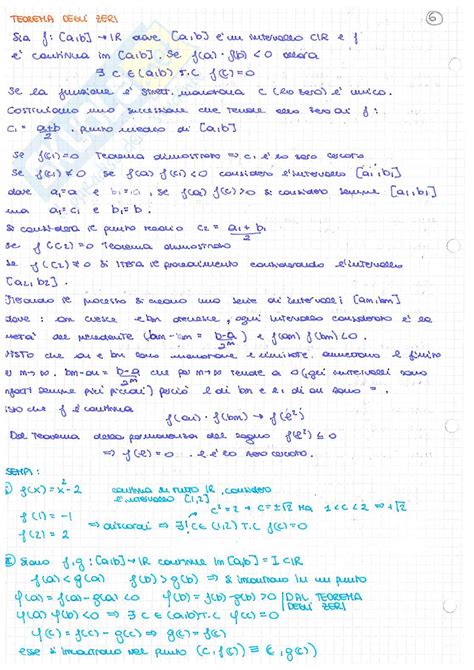 TEOREMA DEGLI ZERI
6
Sia f: [a,b] → IR dove [a,b] è un intervallo CIR e f
è continua im [a,b]. Se f(a)·f(b) < 0 allora
∃ C ∈ (a,b) T.C f(c)=0
Se la funzione è strett. monotona C (lo zero) è unico.
Costruiamo una successione che tende allo zero di f:
C₁ = a+b/2, punto medio di [a,b]
Se f(c₁)=0 Teorema dimostrato ⇒ c₁ è lo zero cercato
Se f(c₁) ≠ 0 se f(a) f(c₁) < 0 considero l'intervallo [a₁,b₁]
dove a₁=a e b₁=c₁, se f(a) f(c₁) > 0 si considera sempre [a₁,b₁]
ma a₁=c₁ e b₁=b.
Si considera il punto medio C₂ = a₁+b₁/2
Se f(c₂)=0 Teorema dimostrato
Se f(c₂) ≠ 0 si itera il procedimento considerando l'intervallo
[a₂,b₂].
Iterando il processo si creano una serie di intervalli [am,bm]
dove: am cresce e bm decresce, ogni intervallo considerato è la
metà del precedente (bm-am = b-a/2ᵐ) e f(am) f(bm) < 0.
visto che am e bm sono monotone e limitate, ammettono il limite
x m→∞. bm-am = b-a/2ᵐ che per m→∞ tende a 0 (gli intervalli sono
infatti sempre più piccoli) perciò l di bm e l₁ di am sono =.
isto che f è continua
f(am)·f(bm) → f(l²)
Dal Teorema della permanenza del segno f(l²) ≤ 0
⇒ f(l)=0 .. l è lo zero cercato.
ESEMPI:
i) f(x) = x²-2 continua su tutto IR, considero
l'intervallo [1,2]
f(1) = -1 c²=2 → c=±√2 ma 1<c<2 ⇒ +√2
f(2) = 2 ⇒ discordi ⇒ ∃! C ∈ (1,2) T.C f(c)=0
Siano f,g: [a,b] → IR continue im [a,b] = I CIR
f(a) < g(a) f(b) > g(b) ⇒ si incontrano in un punto
φ(a) = f(a)-g(a) < 0 φ(b) = f(b)-g(b) > 0 | DAL TEOREMA
φ(a) φ(b) < 0 ⇒ ∃ C ∈ (a,b) T.C φ(c)=0 DEGLI ZERI
φ(c) = f(c)-g(c) ⇒ g(c) = f(c)
esse si incontrano nel punto (c, f(c)) ≡ (c, g(c))